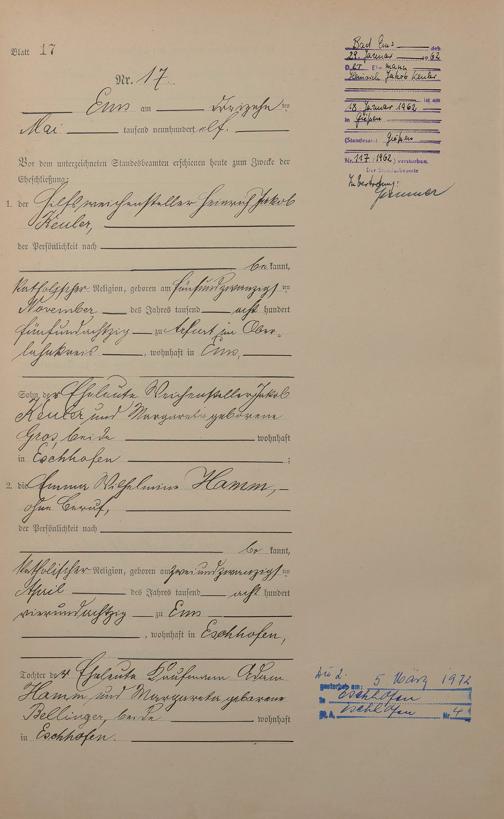 Blatt 17
Nr. 17.
Ems am dreizehn ten
Mai tausend neunhundert elf.
Vor dem unterzeichneten Standesbeamten erschienen heute zum Zwecke der
Eheschließung:
1. der Hilfsweichensteller Heinrich Jakob
Keuler,
der Persönlichkeit nach
be kannt,
katholischer Religion, geboren am fünfundzwanzigsten
November des Jahres tausend acht hundert
fünfundachtzig zu im Ober-
lahnkreis, wohnhaft in Ems,
Sohn der Eheleute Weichensteller Jakob
Keuler und Margareta geborene
Gros, beide wohnhaft
in Eschhofen ;
2. die Emma Wilhelmine Hamm,
ohne Beruf,
der Persönlichkeit nach
be kannt,
katholischer Religion, geboren am zweiundzwanzigsten
April des Jahres tausend acht hundert
vierundachtzig zu Ems
, wohnhaft in Eschhofen,
Tochter der Eheleute Kaufmann Adam
Hamm und Margareta geborene
Bellinger, beide wohnhaft
in Eschhofen.
Bad Ems, den
29. Januar 1962
Der Ehemann
Heinrich Jakob Keuler
ist am
18. Januar 1962
in Gießen
(Standesamt Gießen
Nr. 117/1962) verstorben.
Der Standesbeamte
In Vertretung:
Zu 2.
gestorben am: 5 März 1972
in Eschhofen
St. A. Eschhofen Nr. 4